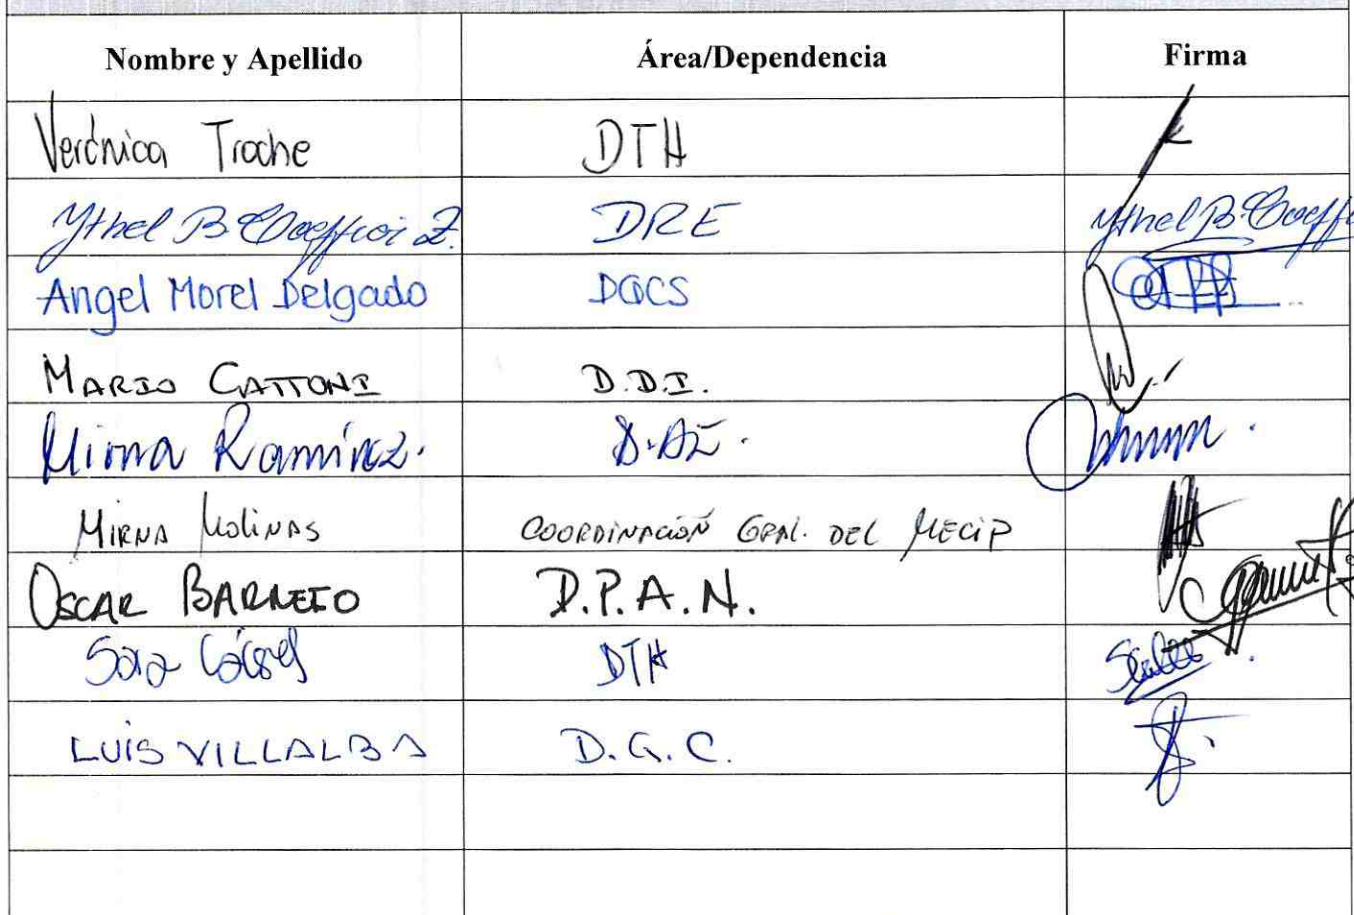 Nombre y Apellido Área/Dependencia Firma
Verónica Troche DTH
Ythel B. Z. DRE Ythel B.
Angel Morel Delgado DGCS
MARIO CATTONI D.D.I.
Mirna Ramírez.
MIRNA MOLINAS COORDINACIÓN GRAL. DEL MECIP
OSCAR BARRETO D.P.A.N.
DTH
LUIS VILLALBA D.G.C.